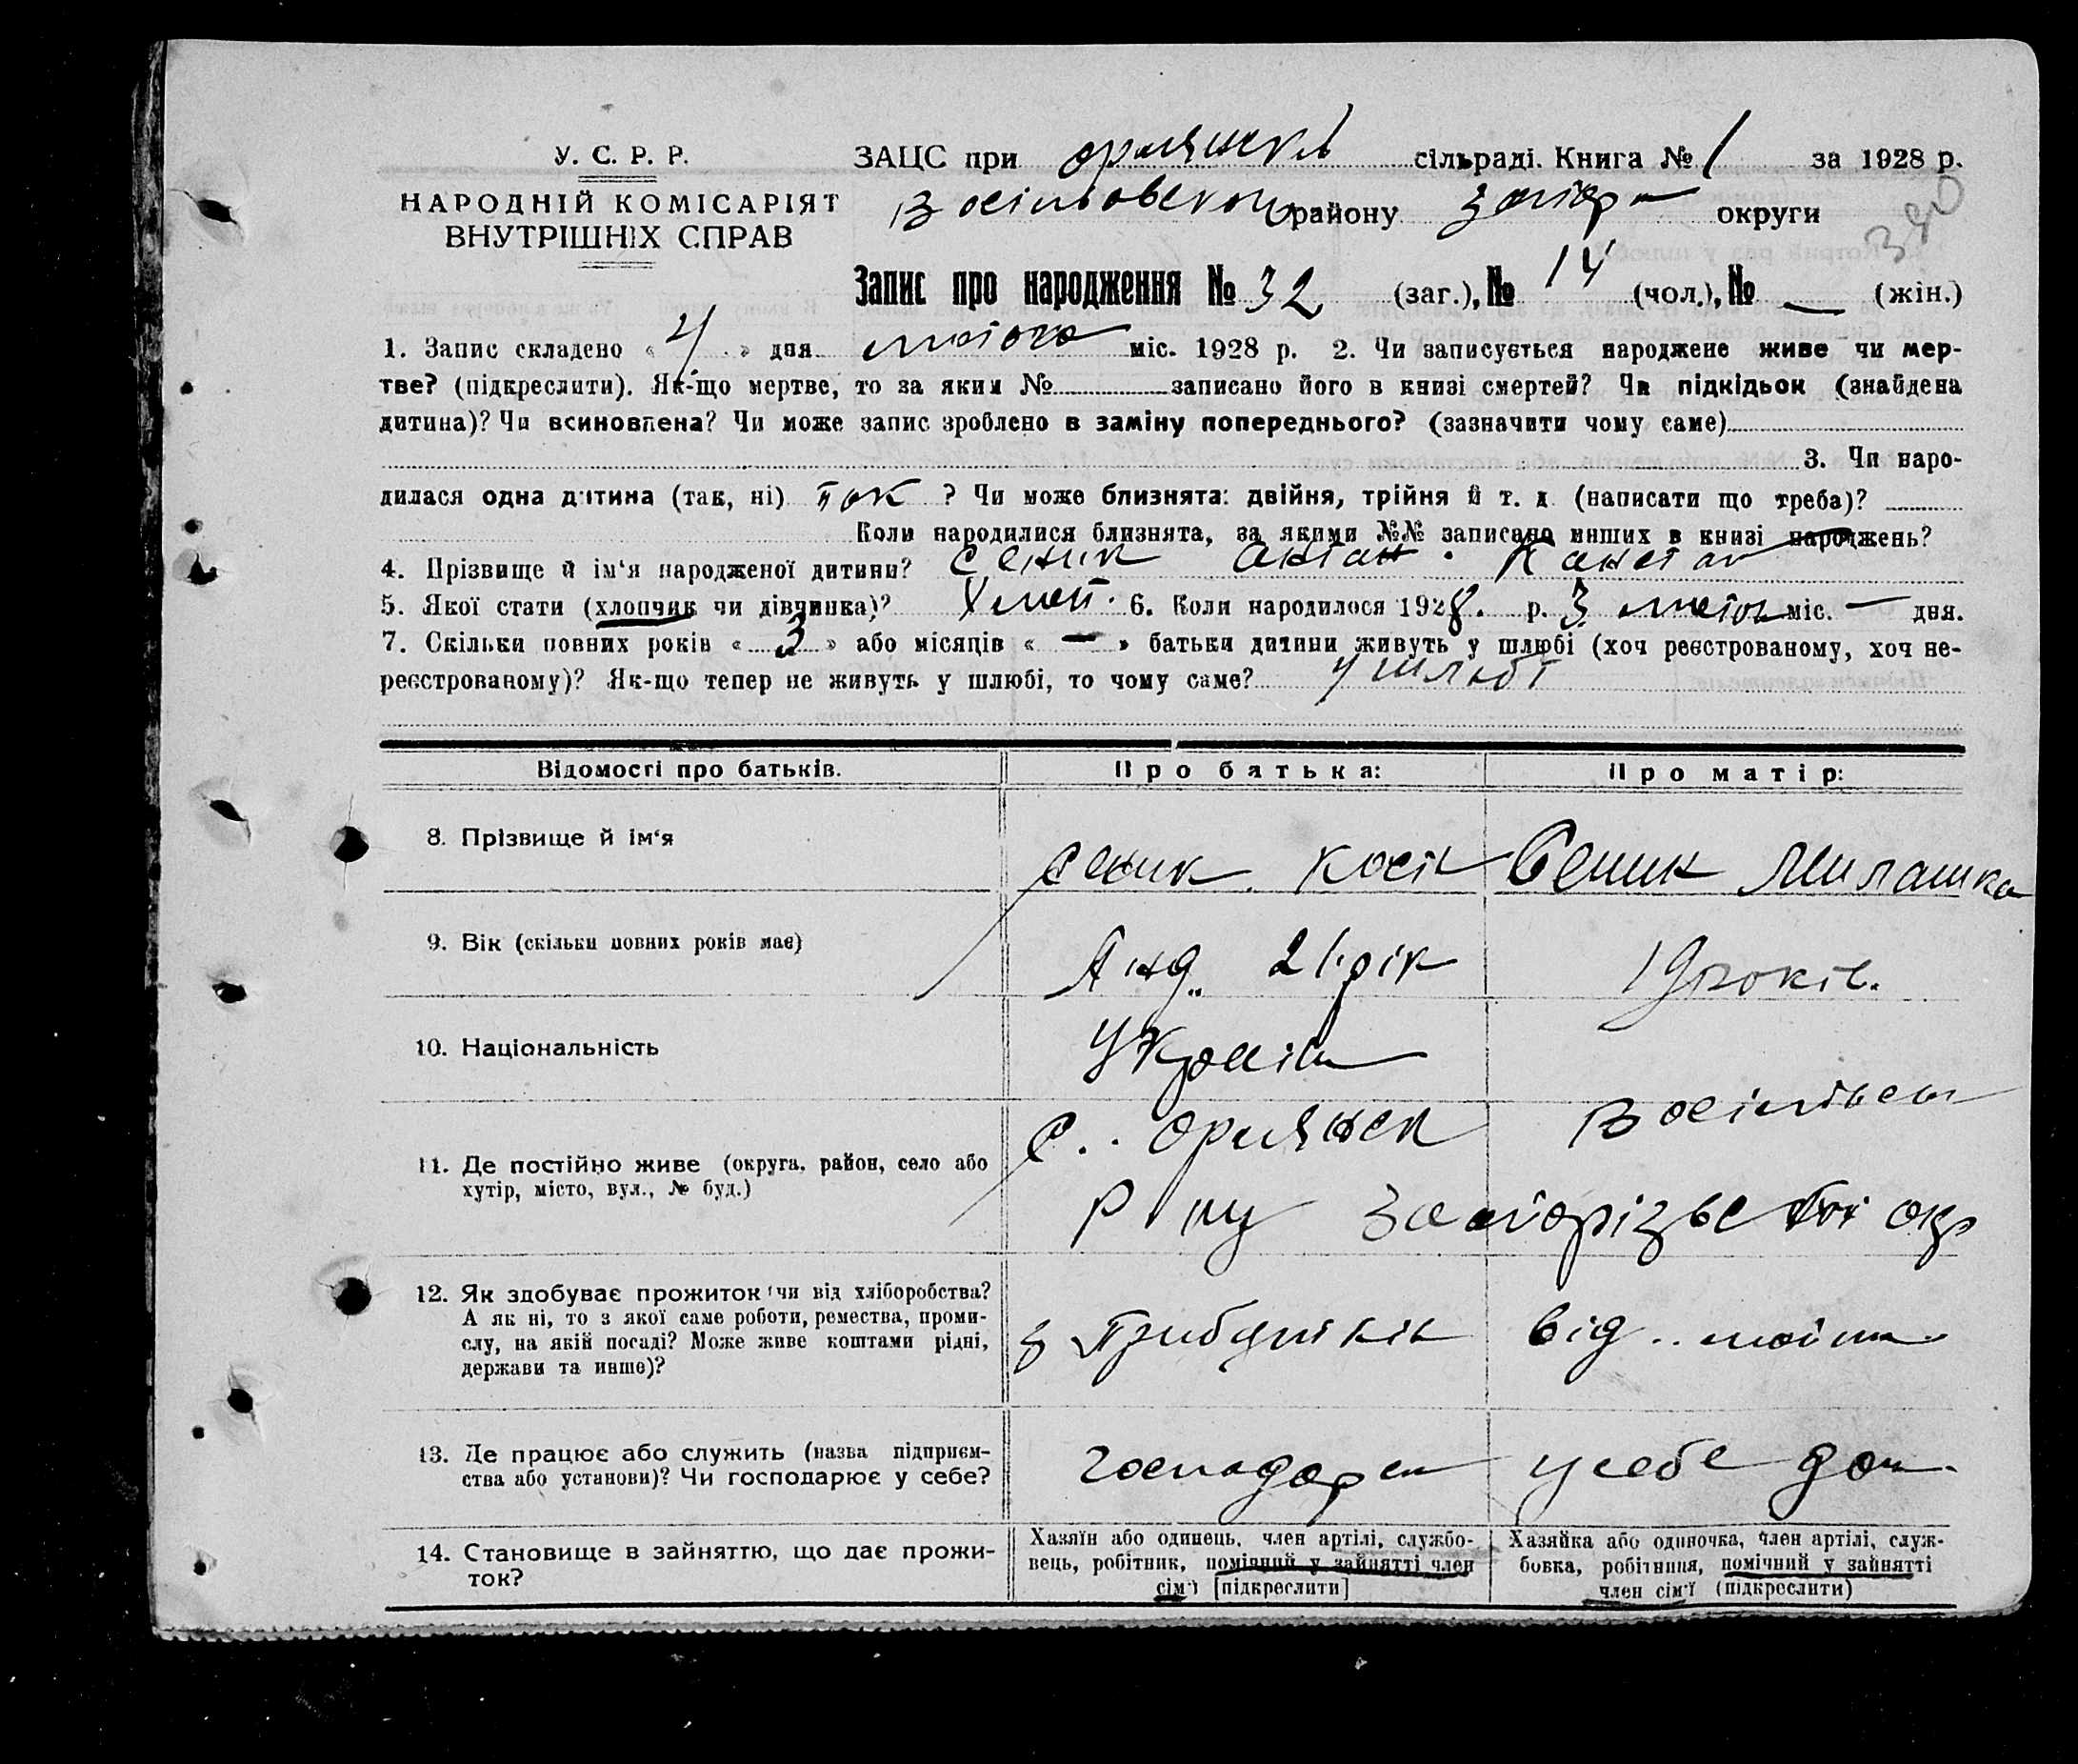 У. С. Р. Р.
НАРОДНІЙ КОМІСАРІЯТ
ВНУТРІШНІХ СПРАВ
ЗАЦС при сільраді. Книга № 1 за 1928 р.
району округи
390
Запис про народження № 32 (заг.), № 14 (чол.), № — (жін.)
1. Запис складено « 4 » дня лютого міс. 1928 р. 2. Чи записується народжене живе чи мер-
тве? (підкреслити). Як-що мертве, то за яким № записано його в книзі смертей? Чи підкідьок (знайдена
дитина)? Чи всиновлена? Чи може запис зроблено в заміну попереднього? (зазначити чому саме)
3. Чи наро-
дилася одна дитина (так, ні) так ? Чи може близнята: двійня, трійня й т. д. (написати що треба)?
Коли народилися близнята, за якими №№ записано инших в книзі народжень?
4. Прізвище й ім‘я народженої дитини? Сеник Антон
5. Якої стати (хлопчик чи дівчинка)? 6. Коли народилося 1928. р. 3 міс. — дня.
7. Скільки повних років « 3 » або місяців « — » батьки дитини живуть у шлюбі (хоч реєстрованому, хоч не-
реєстрованому)? Як-що тепер не живуть у шлюбі, то чому саме? у шлюбі
Відомості про батьків. Про батька: Про матір:
8. Прізвище й ім‘я Сеник Кость Сеник Милашка
9. Вік (скільки повних років має) Анд. 21 рік 19 років.
10. Національність Україн
11. Де постійно живе (округа, район, село або
хутір, місто, вул., № буд.)
с. Орлянск
12. Як здобуває прожиток чи від хліборобства?
А як ні, то з якої саме роботи, ремества, проми-
слу, на якій посаді? Може живе коштами рідні,
держави та инше)?
від
13. Де працює або служить (назва підприєм-
ства або установи)? Чи господарює у себе?
господар у себе дом.
14. Становище в зайняттю, що дає прожи-
ток?
Хазяїн або одинець, член артілі, службо-
вець, робітник, помічний у зайнятті член
сім‘ї [підкреслити]
Хазяйка або одиночка, член артілі, служ-
бовка, робітниця, помічний у зайнятті
член сім‘ї (підкреслити)